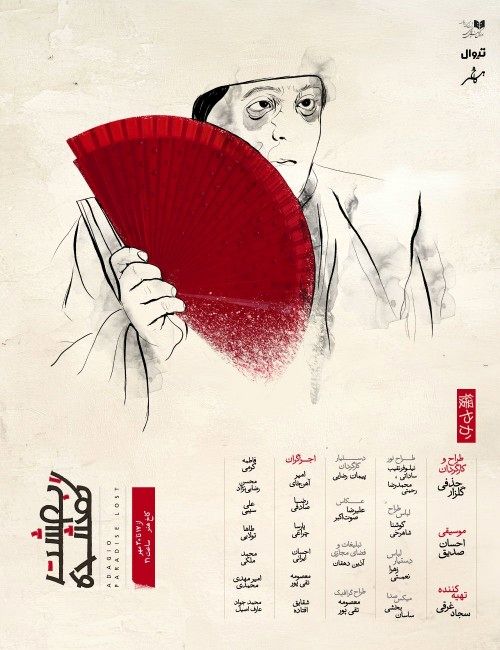 تیوال
緩やか
طراح و
کارگردان
حذفی
گلزار
موسیقی
احسان
صدیق
تهیه
کننده
سجاد
غرقی
طراح نور
نیلوفر نقیب
ساداتی ،
محمدرضا
رحمتی
طراح
لباس
گوشتا
شاهرخی
دستیار
لباس
زهرا
نعمتی
میکس صدا
ساسان
بخشی
دستیار
کارگردان
پیمان رضایی
عکاس
علیرضا
صوت‌اکبر
تبلیغات و
فضای مجازی
آذین دهقان
طراح گرافیک
معصومه
تقی پور
اجراگران
امیر
آهن‌جای
رضیا
صادقی
پارسا
چراغی
احسان
ایرانی
معصومه
تقی پور
شقایق
افتاده
فاطمه
کرمی
محسن
رضایی‌نژاد
علی
سیبی
طاها
تولایی
محمد
ملکی
امیر مهدی
محمدی
محمد جواد
عارف اصیل
از ۱۷ تا ۲۰ مهر
کاخ هنر ساعت ۲۱
ADAGIO
PARADISE LOST
بهشت
گمشده